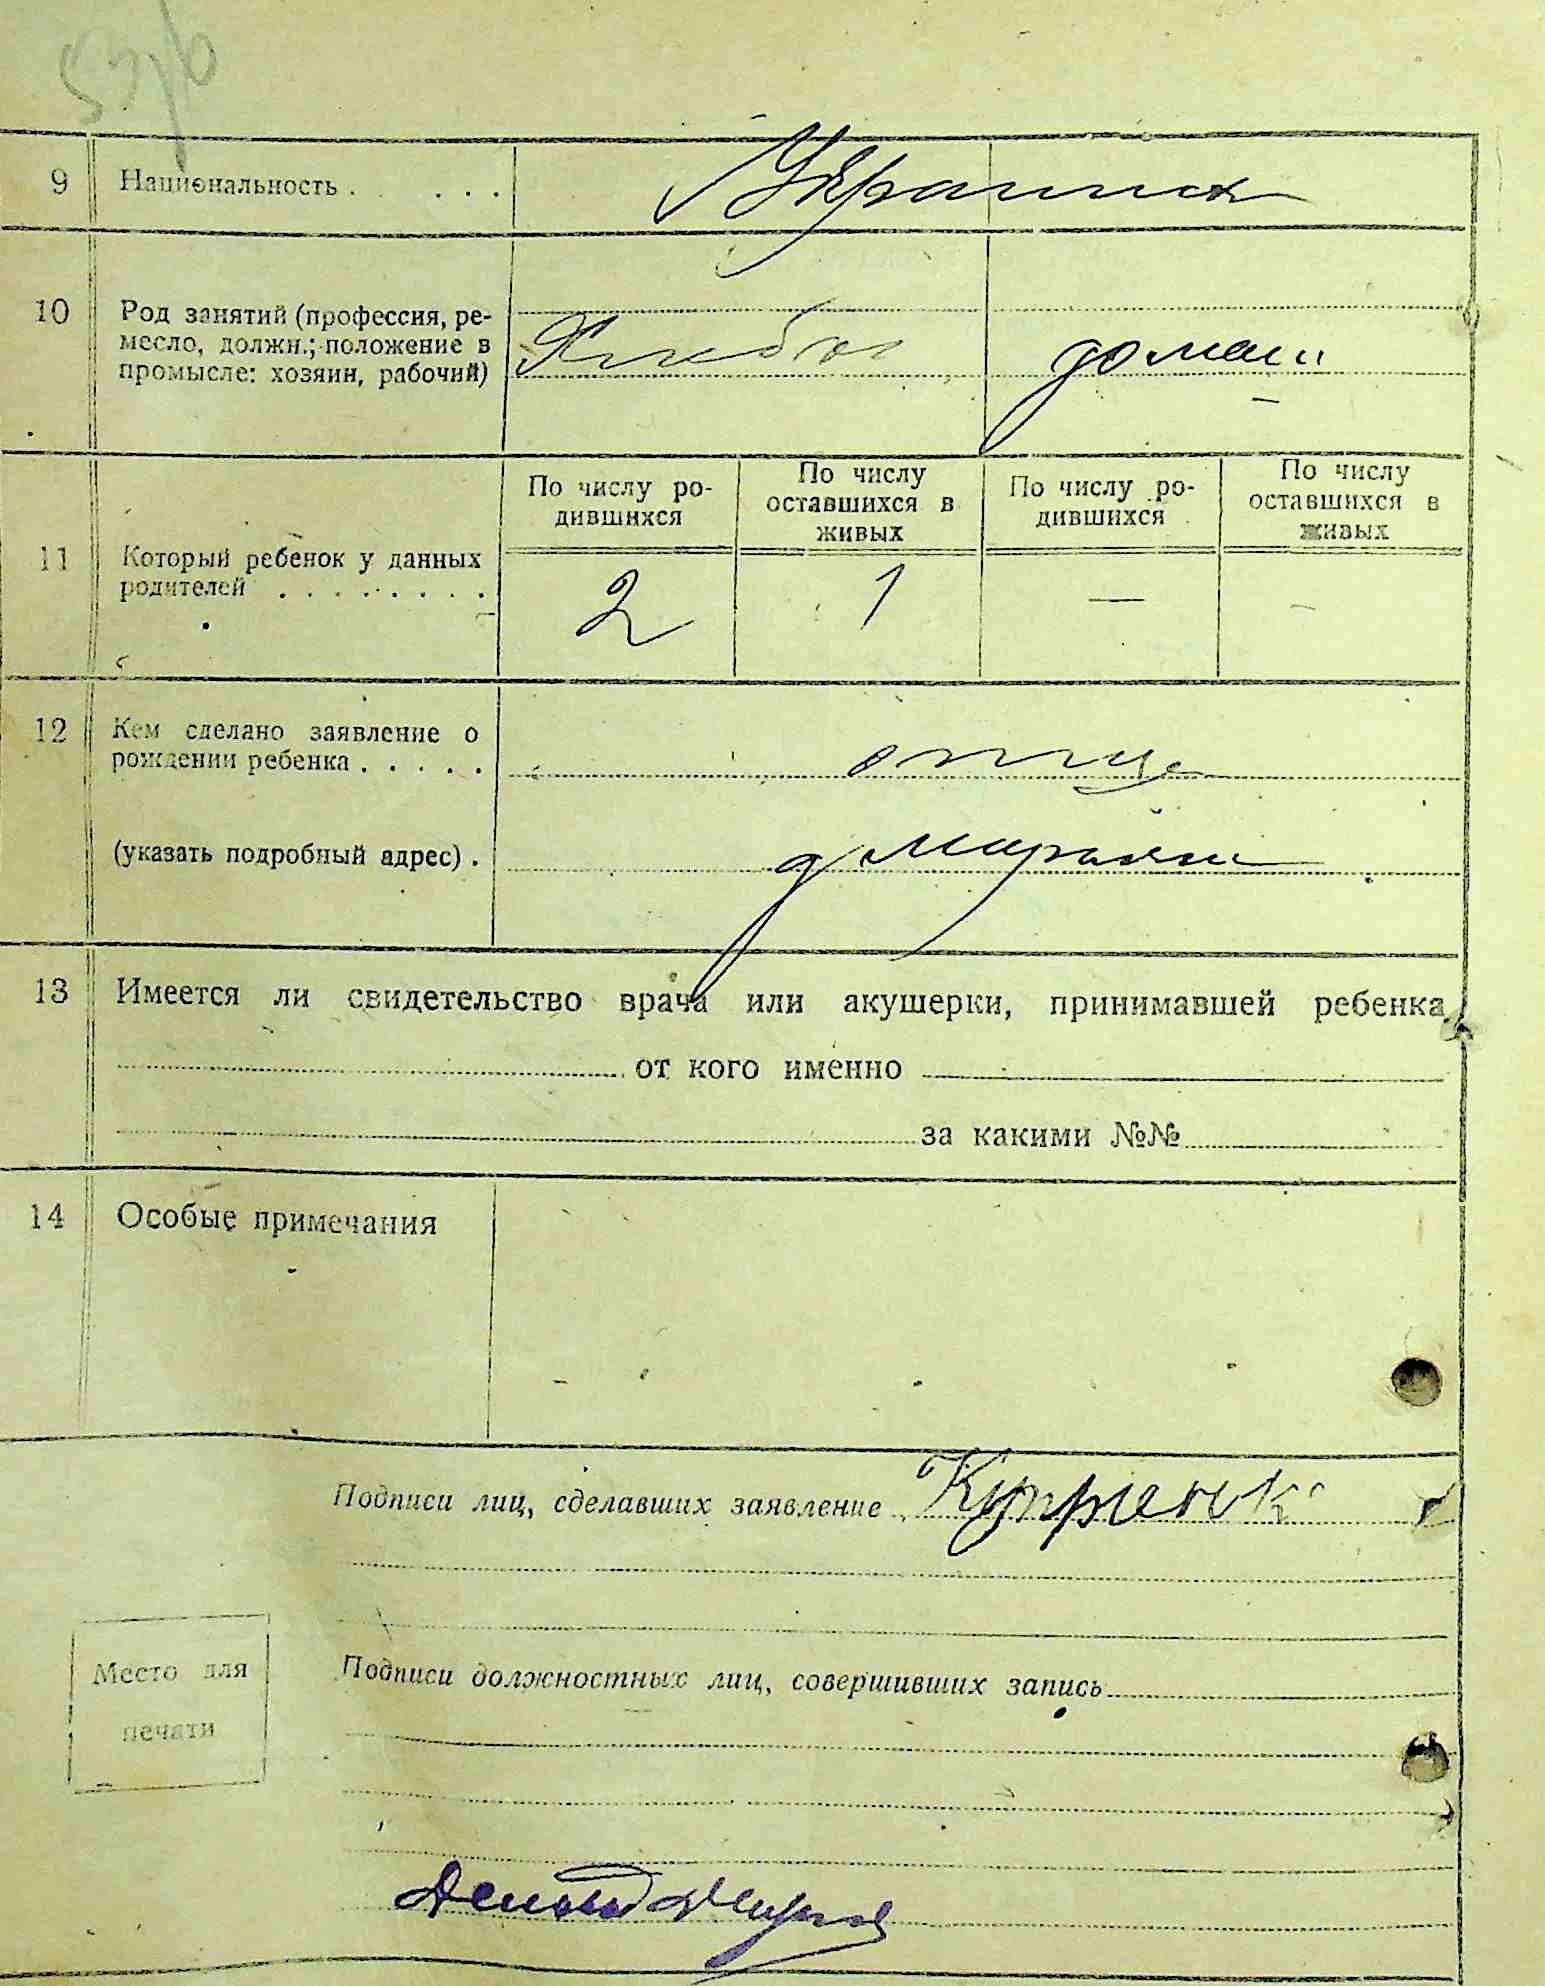 9 Национальность . . . . . Украинск
10 Род занятий (профессия, ре-
месло, должн.; положение в
промысле: хозяин, рабочий) Хлебоп домаш
11 Который ребенок у данных
родителей . . . . . . . .
По числу ро-
дившихся
По числу
оставшихся в
живых
По числу ро-
дившихся
По числу
оставшихся в
живых
2 1 — –
12 Кем сделано заявление о
рождении ребенка . . . . . отцом
(указать подробный адрес) . д
13 Имеется ли свидетельство врача или акушерки, принимавшей ребенка
от кого именно
за какими №№
14 Особые примечания
Подписи лиц, сделавших заявление
Место для
печати
Подписи должностных лиц, совершивших запись